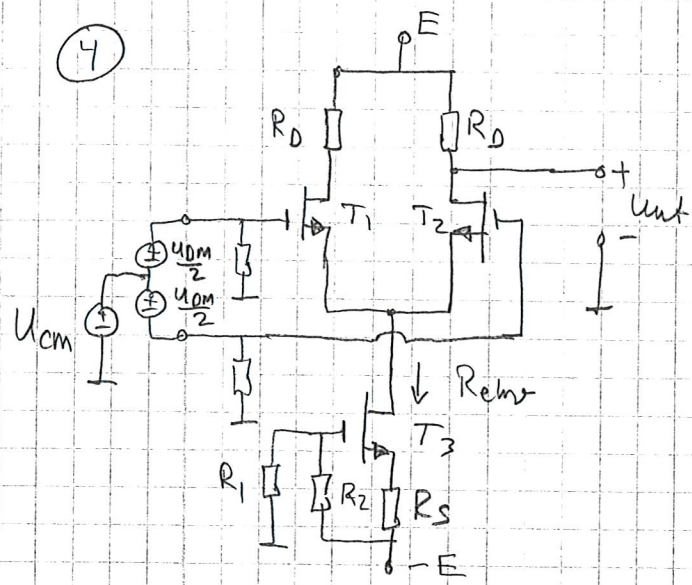 4
E
R_D
R_D
T_1
T_2
+
Uut
-
U_DM
2
U_DM
2
U_CM
R_ekv
T_3
R_1
R_2
R_S
-E